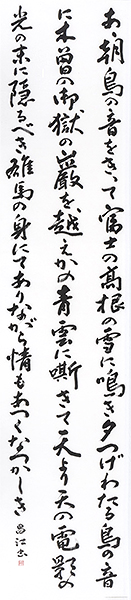 あゝ朝鳥の音をきゝて富士の高根の雪に鳴き夕つげわたる鳥の音
に木曽の御嶽の巖を越えかの青雲に嘶きて天より天の電影の
光の末に隠るべき雄馬の身にてありながら情もあつくなつかしき
昌江書